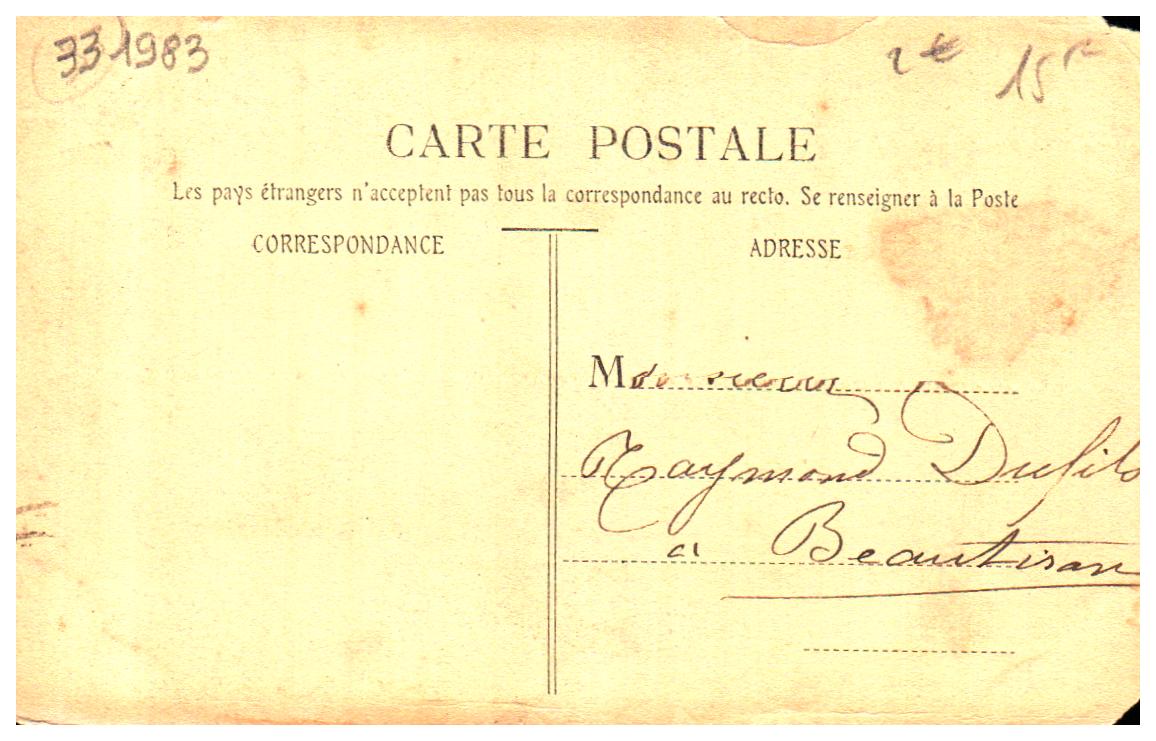 33 1983
2€ 15
CARTE POSTALE
Les pays étrangers n'acceptent pas tous la correspondance au recto. Se renseigner à la Poste
CORRESPONDANCE
ADRESSE
Monsieur
Raymond Dufilo
a Beautiran